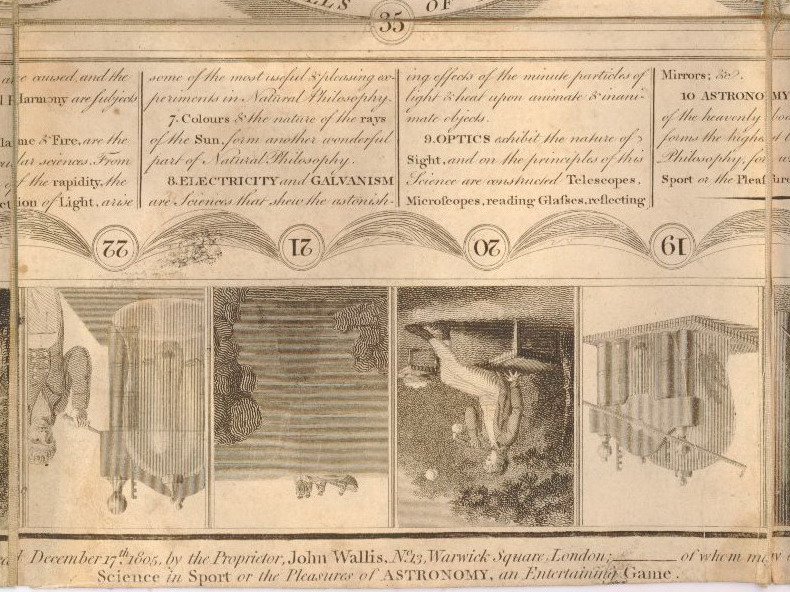 OF
35
are caused, and the
Harmony are subjects
& Fire, are the
sciences. From
of the rapidity, the
of Light, arise
some of the most useful & pleasing ex-
periments in Natural Philosophy.
7. Colours & the nature of the rays
of the Sun, form another wonderful
part of Natural Philosophy.
8. ELECTRICITY and GALVANISM
are Sciences that shew the astonish-
ing effects of the minute particles of
light & heat upon animate & inani-
mate objects.
9. OPTICS exhibit the nature of
Sight, and on the principles of this
Science are constructed Telescopes,
Microſcopes, reading Glaſses, reflecting
Mirrors; &c.
10 ASTRONOMY
of the heavenly
forms the highest
Philosophy, for
Sport or the Pleaſure
22
21
20
19
December 17.th 1805, by the Proprietor, John Wallis, No. 13, Warwick Square, London; of whom may
Science in Sport or the Pleasures of ASTRONOMY, an Entertaining Game.